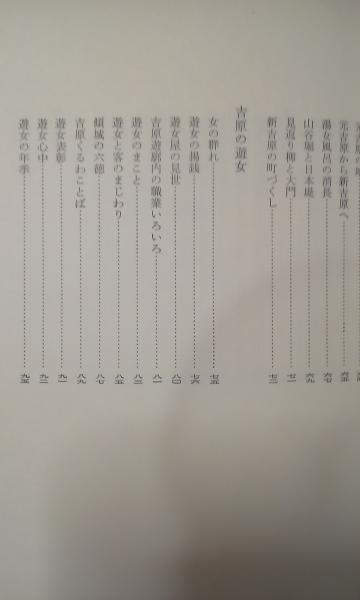 元吉原から新吉原へ……六五
湯女風呂の消長……六七
山谷堀と日本堤……六九
見返り柳と大門……七一
新吉原の町づくし……七三
吉原の遊女
女の群れ……七五
遊女の揚銭……七六
遊女屋の見世……八〇
吉原遊廓内の職業いろいろ……八一
遊女のまこと……八三
遊女と客のまじわり……八五
傾城の六徳……八七
吉原くるわことば……八九
遊女表彰……九一
遊女心中……九二
遊女の年季……九五